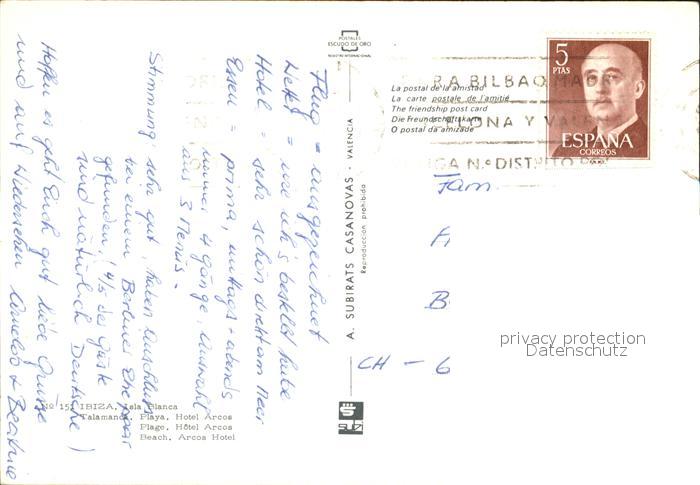 POSTALES
ESCUDO DE ORO
REGISTRO INTERNACIONAL
5
PTAS
ESPAÑA
CORREOS
RA BILBAO MAD
LONA Y VALEN
GA N.º DISTRITO POS
La postal de la amistad
La carte postale de l'amitié
The friendship post card
Die Freundschaftskarte
O postal da amizade
A. SUBIRATS CASANOVAS - VALENCIA
Reproducción prohibida
Flug = ausgezeichnet
Wetter = wie ich's bestellt habe
Hotel = sehr schön direkt am Meer
Essen = prima, mittags + abends
immer 4 Gänge, Auswahl
aus 3 Menus.
Stimmung sehr gut, haben Anschluss
bei einem Berliner Ehepaar
gefunden. (4/5 der Gäste
sind natürlich Deutsche)
Hoffen es geht Euch gut liebe Grüsse
und auf Wiedersehen + Beatrice
Fam.
A
B
CH - 6
privacy protection
Datenschutz
Nº 15 IBIZA, Isla Blanca
Talamanca. Playa, Hotel Arcos
Plage, Hôtel Arcos
Beach, Arcos Hotel